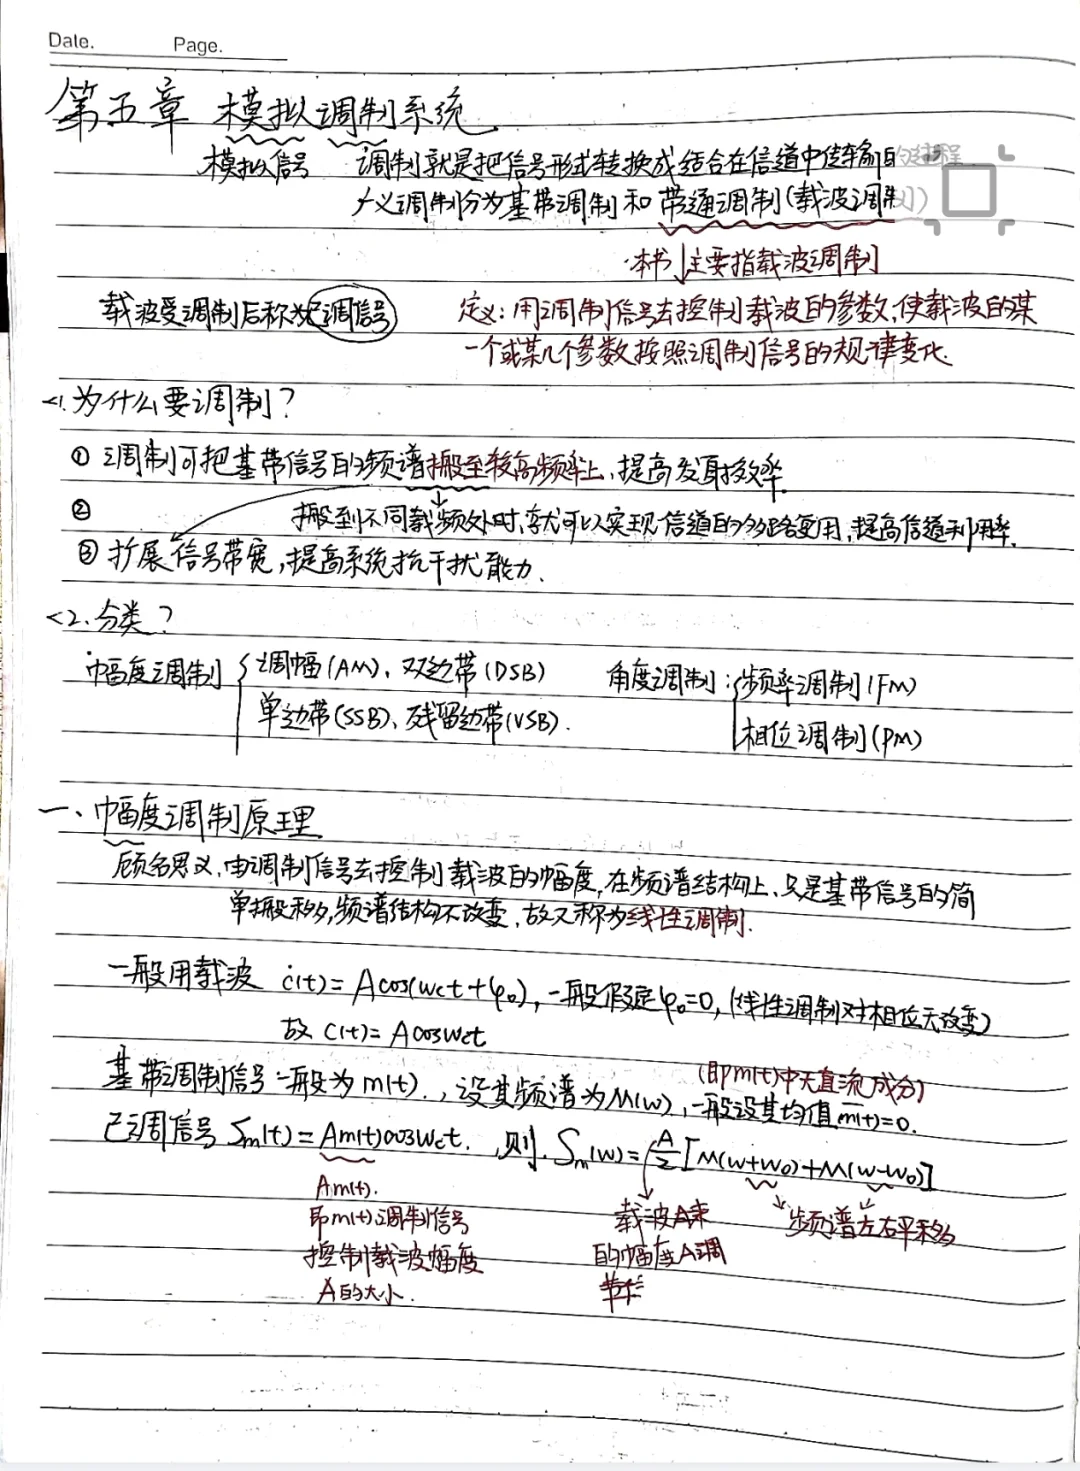 Date. Page.
第五章 模拟调制系统
模拟信号 调制就是把信号形式转换成适合在信道中传输的过程
广义调制分为基带调制和带通调制(载波调制)
本书↓主要指载波调制
载波受调制后称为已调信号 定义:用调制信号去控制载波的参数,使载波的某
一个或某几个参数按照调制信号的规律变化.
<1.为什么要调制?
① 调制可把基带信号的频谱搬至较高频率上,提高发射效率.
② 搬到不同载频处时,就可以实现信道的多路复用,提高信道利用率.
③ 扩展信号带宽,提高系统抗干扰能力.
<2.分类?
幅度调制 { 调幅(AM)、双边带(DSB) 角度调制: { 频率调制(FM)
单边带(SSB)、残留边带(VSB). 相位调制(PM)
一、幅度调制原理
顾名思义,由调制信号去控制载波的幅度,在频谱结构上,只是基带信号的简
单搬移,频谱结构不改变,故又称为线性调制.
一般用载波 c(t)=Acos(wct+φ₀),一般假定φ₀=0,(线性调制对相位无改变)
故 c(t)=Acoswct
(即m(t)中无直流成分)
基带调制信号一般为m(t).,设其频谱为M(w),一般设其均值 m̅(t)=0.
已调信号 Sm(t)=Am(t)coswct. ,则. Sm(w)=A/2[M(w+w₀)+M(w-w₀)]
Am(t). 载波A来 频谱左右平移
即m(t)调制信号 的幅度A调
控制载波幅度
A的大小.